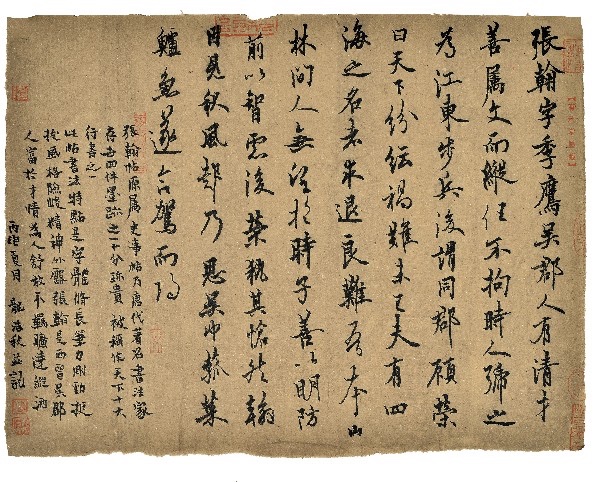 張翰字季鷹吳郡人有清才
善属文而縱任不拘時人號之
為江東步兵後謂同郡顧榮
曰天下紛紜禍難未已夫有四
海之名者求退良難吾本山
林間人無望於時子善以明防
前以智慮後榮執其愴然翰
因見秋風起乃思吳中菰菜
鱸魚遂命駕而歸
張翰帖原属史事帖為唐代著名書法家
存世四件墨跡之一十分珍貴被稱作天下十大
行書之一
此帖書法特點是字體修長筆力剛勁挺
拔風格險峻精神外露張翰是西晋吳郡
人富於才情為人舒放不羈曠達縱酒
丙申夏月